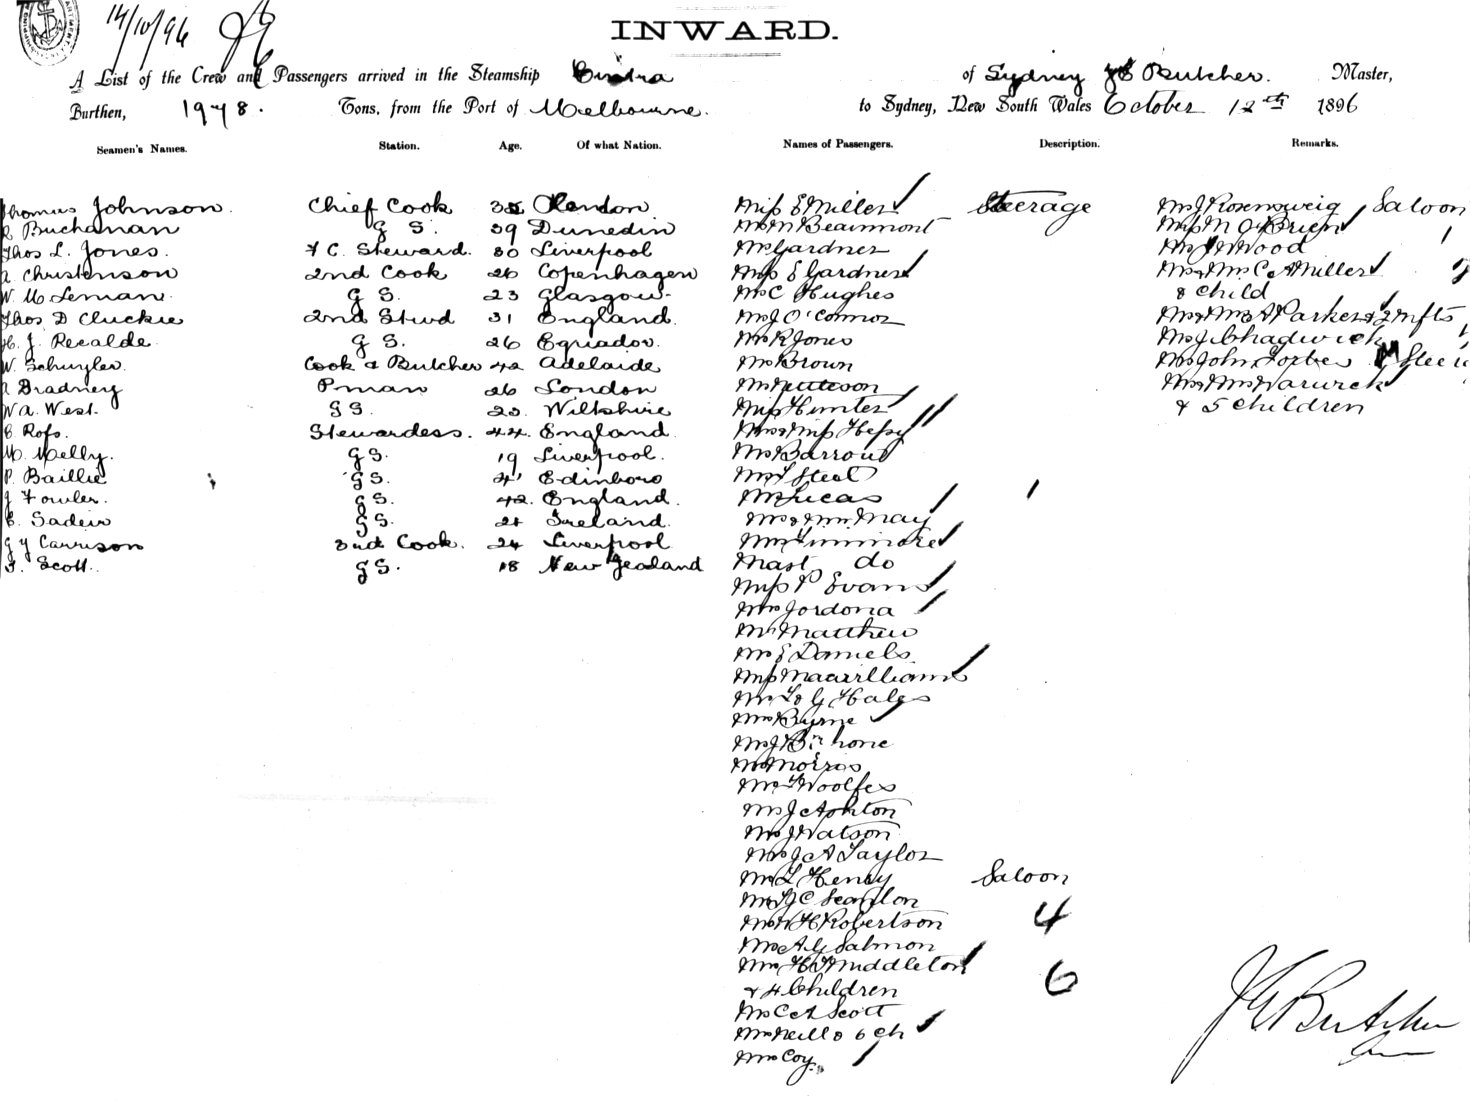 14/10/96
INWARD.
A List of the Crew and Passengers arrived in the Steamship Cintra of Sydney J E Butcher. Master,
Burthen, 1978. Tons, from the Port of Melbourne. to Sydney, New South Wales October 12th 1896
Seamen's Names. Station. Age. Of what Nation. Names of Passengers. Description. Remarks.
Thomas Johnson. Chief Cook London
Buchanan G S. 39 Dunedin
Thos L. Jones. F C. Steward. 30 Liverpool
A Christenson 2nd Cook 26 Copenhagen
W. McLeman. G S. 23 Glasgow.
Thos D Cluckie 2nd Stwd 31 England.
H. J. Recalde. G S. 26 Equador.
W. Schuyler. Cook & Butcher 42 Adelaide
A Bradney Pman 26 London
W A. West. G S. Wiltshire
E Ross. Stewardess. 44. England.
M. Melly. G S. 19 Liverpool.
P. Baillie G S. Edinboro
J Fowler. G S. 42. England.
G S. Ireland.
G Y Carrison 3rd Cook. 24 Liverpool
Scott. G S. 18 New Zealand
Miss E Miller Steerage
Mr W Beaumont
Mr Gardner
Miss E Gardner
Mr C Hughes
Mr J O'Connor
Mr R Jones
Mr Brown
Mr
Miss Hunter
Mrs & Miss
Mr
Mr Steel
Mr Lucas
Mr & Mrs May
Mrs
Mast do
Miss P Evans
Mrs Jordona
Mr Matthew
Mr E Daniels.
Miss Macwilliams
Mr L G Hales
Mrs Byrne
Mr J
Mr Morris
Mr Woolfes
Mr J Ashton
Mr J Watson
Mr J A Taylor
Mr L Henry Saloon
Mr J C Scanlon
4
Mr W H Robertson
Mr A G Salmon
Mrs H J Middleton
6
& 4 Children
Mr C A Scott
Mrs Neill & 6 Ch
Mrs Coy.
Mr J Rosenzweig Saloon
Miss M O'Brien
Mr J Wood
Mr & Mrs C A Miller
& Child
Mr & Mrs A Parker & 2 Infts
Mr J Chadwick
Mr John Forbes
Mr & Mrs Warwick
& 5 Children
J E Butcher